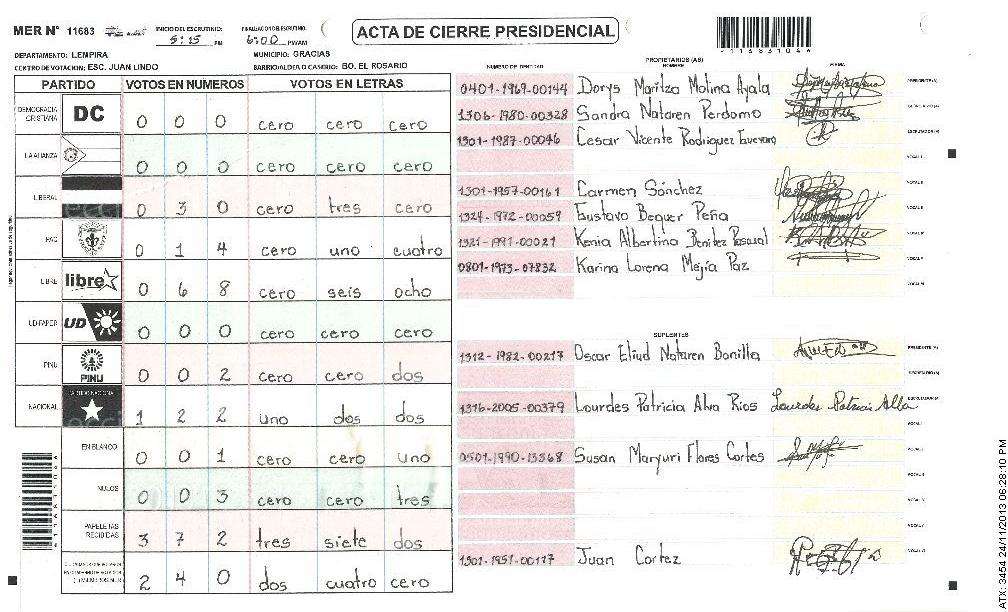 MER Nº 11683
INICIO DEL ESCRUTINIO:
5:15 PM
FINALIZACION DEL ESCRUTINIO:
6:00 PM/AM
ACTA DE CIERRE PRESIDENCIAL
DEPARTAMENTO: LEMPIRA
MUNICIPIO: GRACIAS
CENTRO DE VOTACION: ESC. JUAN LINDO
BARRIO/ALDEA O CASERIO: BO. EL ROSARIO
PARTIDO VOTOS EN NUMEROS VOTOS EN LETRAS
DEMOCRACIA CRISTIANA DC 0 0 0 cero cero cero
LA ALIANZA 0 0 0 cero cero cero
LIBERAL 0 3 0 cero tres cero
PAC 0 1 4 cero uno cuatro
LIBRE libre 0 6 8 cero seis ocho
UD-FAPER UD 0 0 0 cero cero cero
PINU PINU 0 0 2 cero cero dos
NACIONAL PARTIDO NACIONAL 1 2 2 uno dos dos
EN BLANCO 0 0 1 cero cero uno
NULOS 0 0 3 cero cero tres
PAPELETAS RECIBIDAS 3 7 2 tres siete dos
2 4 0 dos cuatro cero
PROPIETARIOS (AS)
NUMERO DE IDENTIDAD NOMBRE FIRMA
0401-1969-00144 Dorys Maritza Molina Ayala PRESIDENTE (A)
1306-1980-00328 Sandra Nataren Perdomo SECRETARIO (A)
1301-1987-00046 Cesar Vicente Rodriguez Guevara ESCRUTADOR (A)
VOCAL I
1301-1957-00161 Carmen Sánchez VOCAL II
1324-1972-00059 Gustavo Bequer Peña
1321-1991-00021 Kenia Albertina Benitez Pascual
0801-1973-07832 Karina Lorena Mejía Paz
SUPLENTES
1312-1982-00217 Oscar Eliud Nataren Bonilla PRESIDENTE (A)
SECRETARIO (A)
1316-2005-00379 Lourdes Patricia Alva Rios Lourdes Patricia Alba ESCRUTADOR (A)
0501-1990-13368 Susan Maryuri Flores Cortes
1301-1951-00117 Juan Cortez
ATX: 3454 24/11/2013 06:28:10 PM